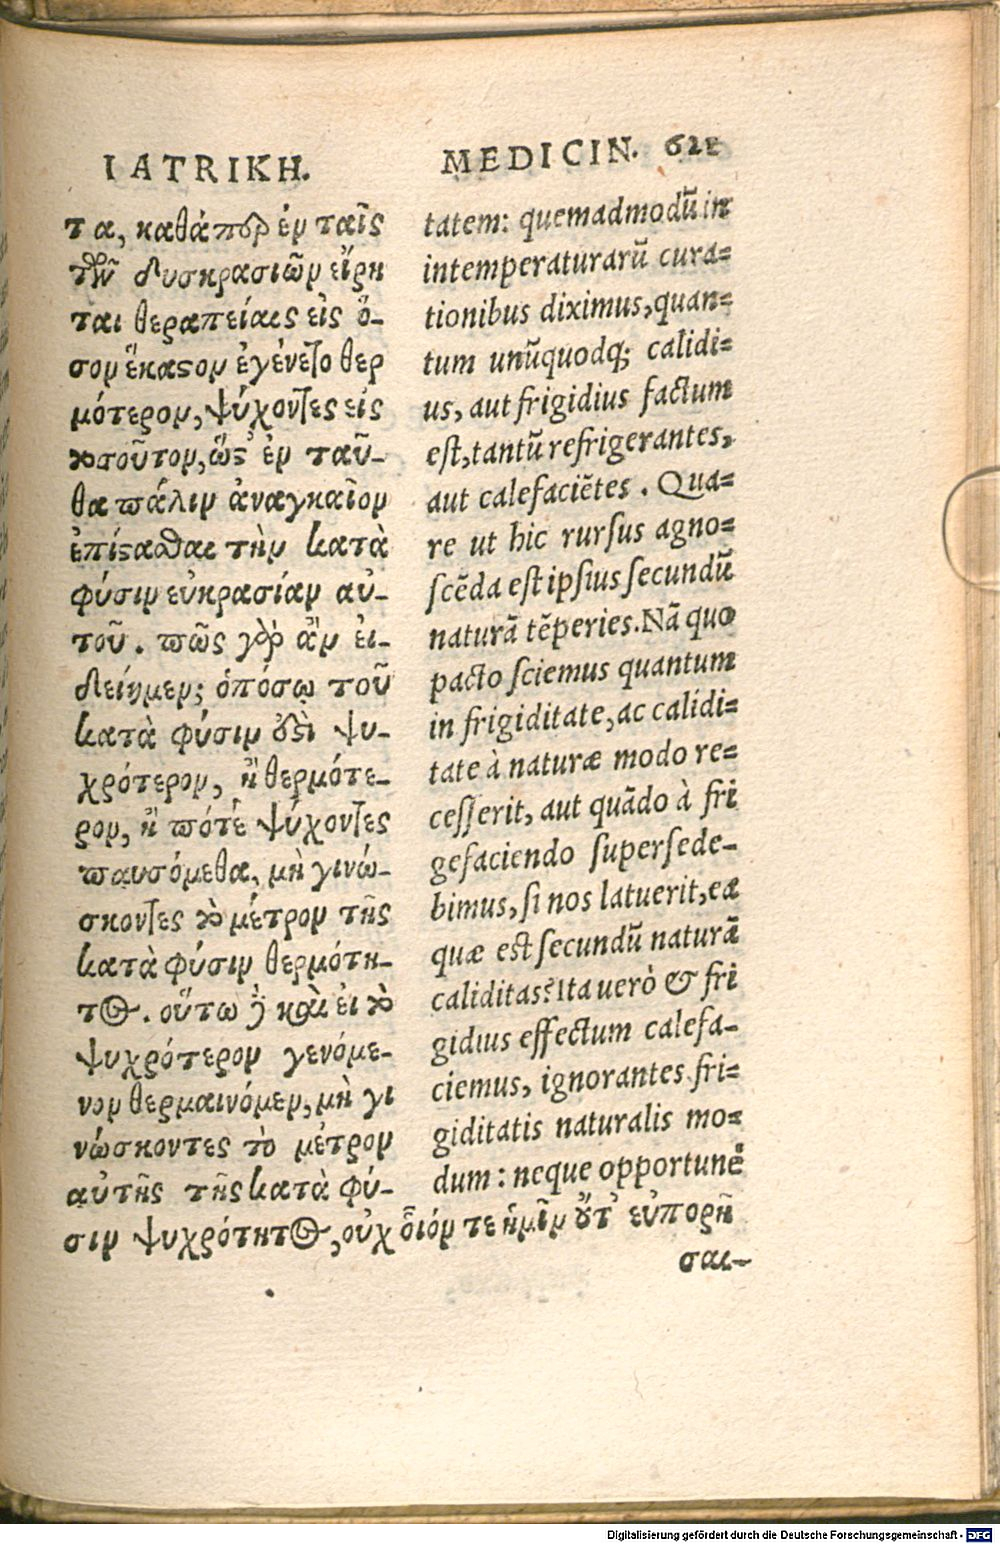 ΙΑΤΡΙΚΗ.
τα, καθάπερ ἐν ταῖς
τῶν δυσκρασιῶν εἴρη
ται θεραπείαις εἰς ὅ-
σον ἕκαστον ἐγένετο θερ
μότερον, ψύχοντες εἰς
τοσοῦτον, ὥστ' ἐν ταῦ-
θα πάλιν ἀναγκαῖον
ἐπίστασθαι τὴν κατὰ
φύσιν εὐκρασίαν αὐ-
τοῦ. πῶς γὰρ ἂν εἰ-
δείημεν; ὁπόσῳ τοῦ
κατὰ φύσιν ἐστὶ ψυ-
χρότερον, ἢ θερμότε-
ρον, ἢ πότε ψύχοντες
παυσόμεθα, μὴ γινώ-
σκοντες τὸ μέτρον τῆς
κατὰ φύσιν θερμότη-
τος. οὕτω δὲ καὶ εἰ τὸ
ψυχρότερον γενόμε-
νον θερμαινόμεν, μὴ γι
νώσκοντες τὸ μέτρον
αὐτῆς τῆς κατὰ φύ-
σιν ψυχρότητος, οὐχ οἷόν τε ἡμῖν οὔτ' εὐπορῆ
σαι-
MEDICIN. 621
tatem: quemadmodũ in
intemperaturarũ cura=
tionibus diximus, quan=
tum unũquodq; calidi=
us, aut frigidius factum
est, tantũ refrigerantes,
aut calefaciẽtes. Qua=
re ut hic rursus agno=
scẽda est ipsius secundũ
naturã tẽperies. Nã quo
pacto sciemus quantum
in frigiditate, ac calidi=
tate à naturæ modo re=
cesserit, aut quãdo à fri
gefaciendo supersede-
bimus, si nos latuerit, ea
quæ est secundũ naturã
caliditas? Ita uerò & fri
gidius effectum calefa-
ciemus, ignorantes fri=
giditatis naturalis mo=
dum: neque opportunè
Digitalisierung gefördert durch die Deutsche Forschungsgemeinschaft - DFG